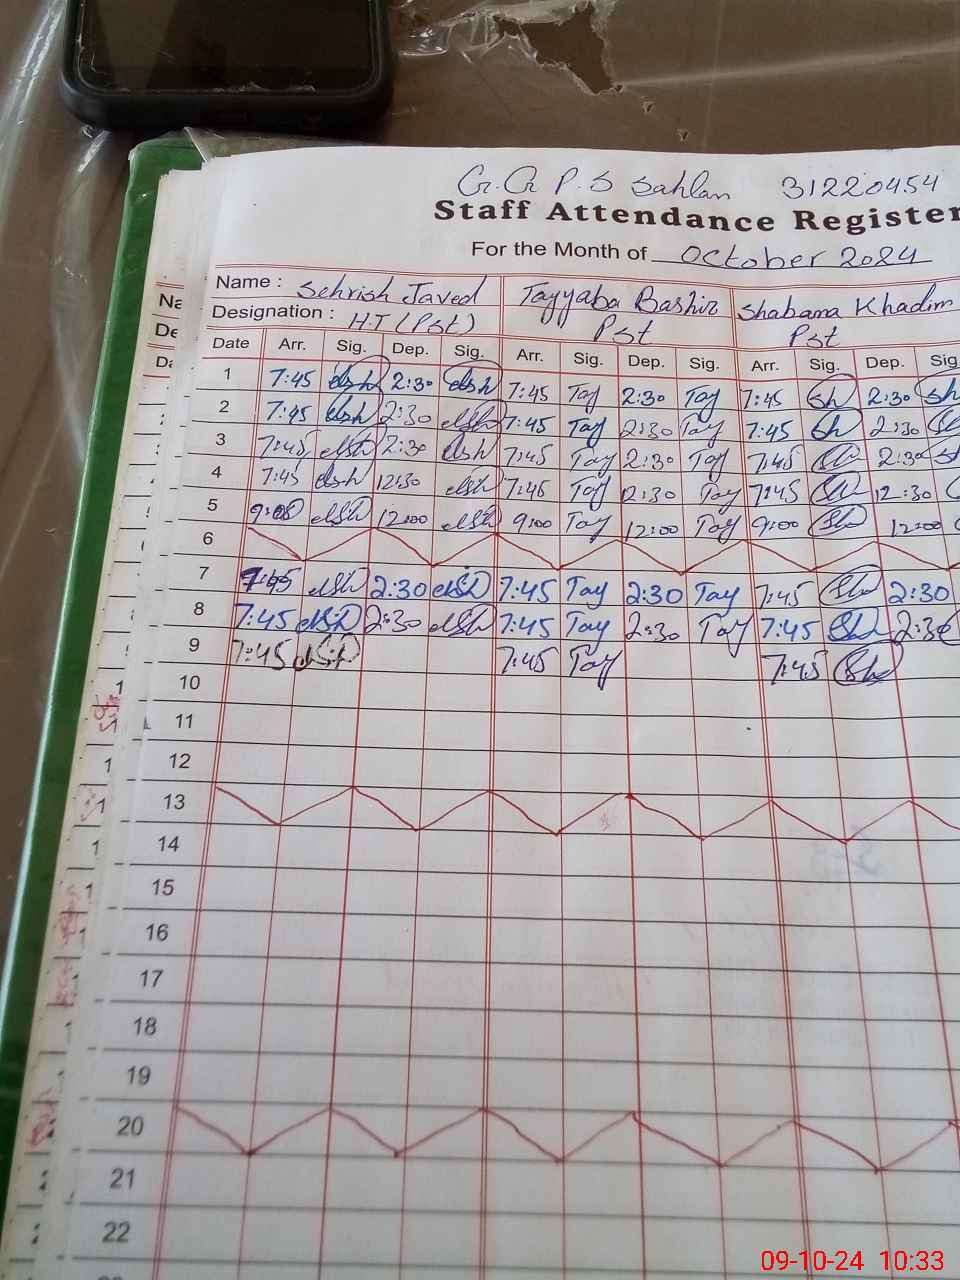 G.G P.S Sahlan 31220454
Staff Attendance Register
For the Month of October 2024
Name : Sehrish Javed Tayyaba Bashir Shabana Khadim
Designation : H.T (Pst) Pst Pst
Date Arr. Sig. Dep. Sig. Arr. Sig. Dep. Sig. Arr. Sig. Dep. Sig
1 7:45 2:30 7:45 Tay 2:30 Tay 7:45 Sh 2:30 Sh
2 7:45 2:30 7:45 Tay 2:30 Tay 7:45 Sh 2:30
3 7:45 2:30 7:45 Tay 2:30 Tay 7:45 2:30
4 7:45 12:30 7:45 Tay 12:30 Tay 7:45 12:30
5 9:00 12:00 9:00 Tay 12:00 Tay 9:00 Sh 12:00
6
7 7:45 2:30 7:45 Tay 2:30 Tay 7:45 Sh 2:30
8 7:45 2:30 7:45 Tay 2:30 Tay 7:45 Sh 2:30
9 7:45 7:45 Tay 7:45 Sh
10
11
12
13
14
15
16
17
18
19
20
21
22
09-10-24 10:33